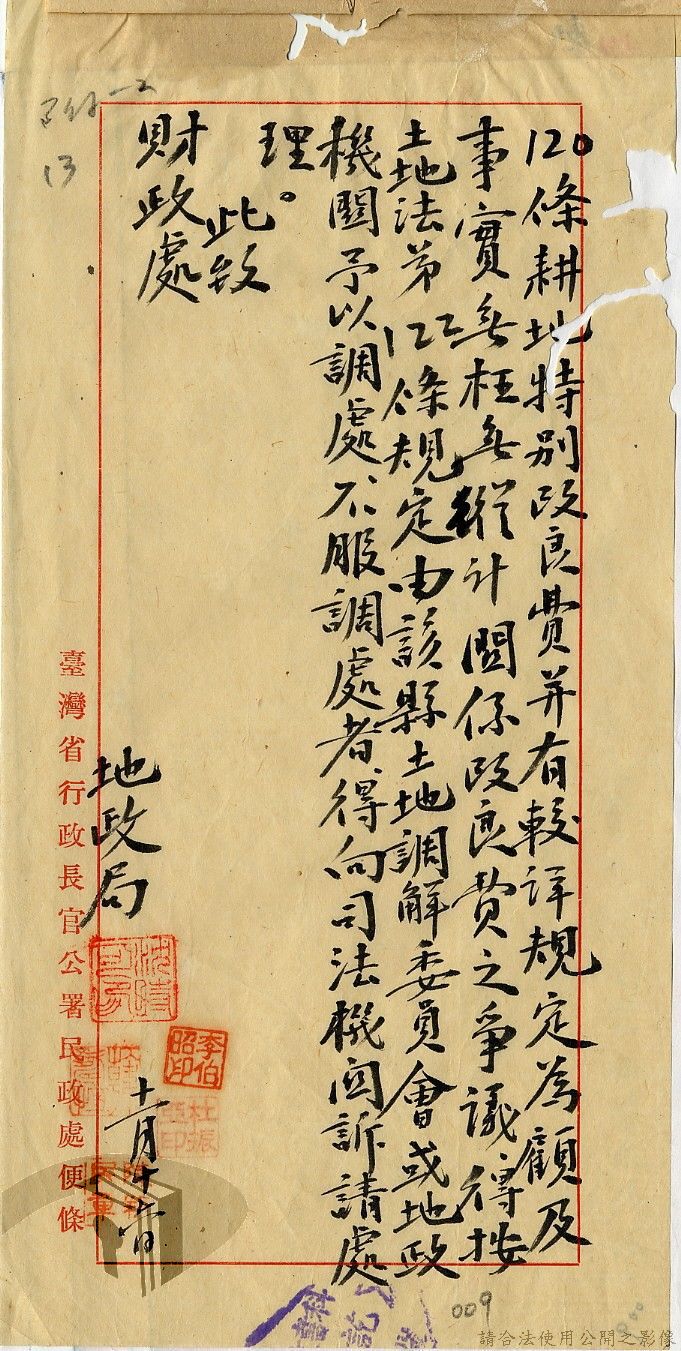 120條耕地特別改良費并有較詳規定為顧及
事實無枉無縱計關係改良費之爭議得按
土地法第122條規定由該縣土地調解委員會或地政
機關予以調處、不服調處者、得向司法機関訴請處
理。
此致
財政處
地政局
李伯
昭印
杜振
亞印
臺灣省行政長官公署民政處便條
13
009
請合法使用公開之影像